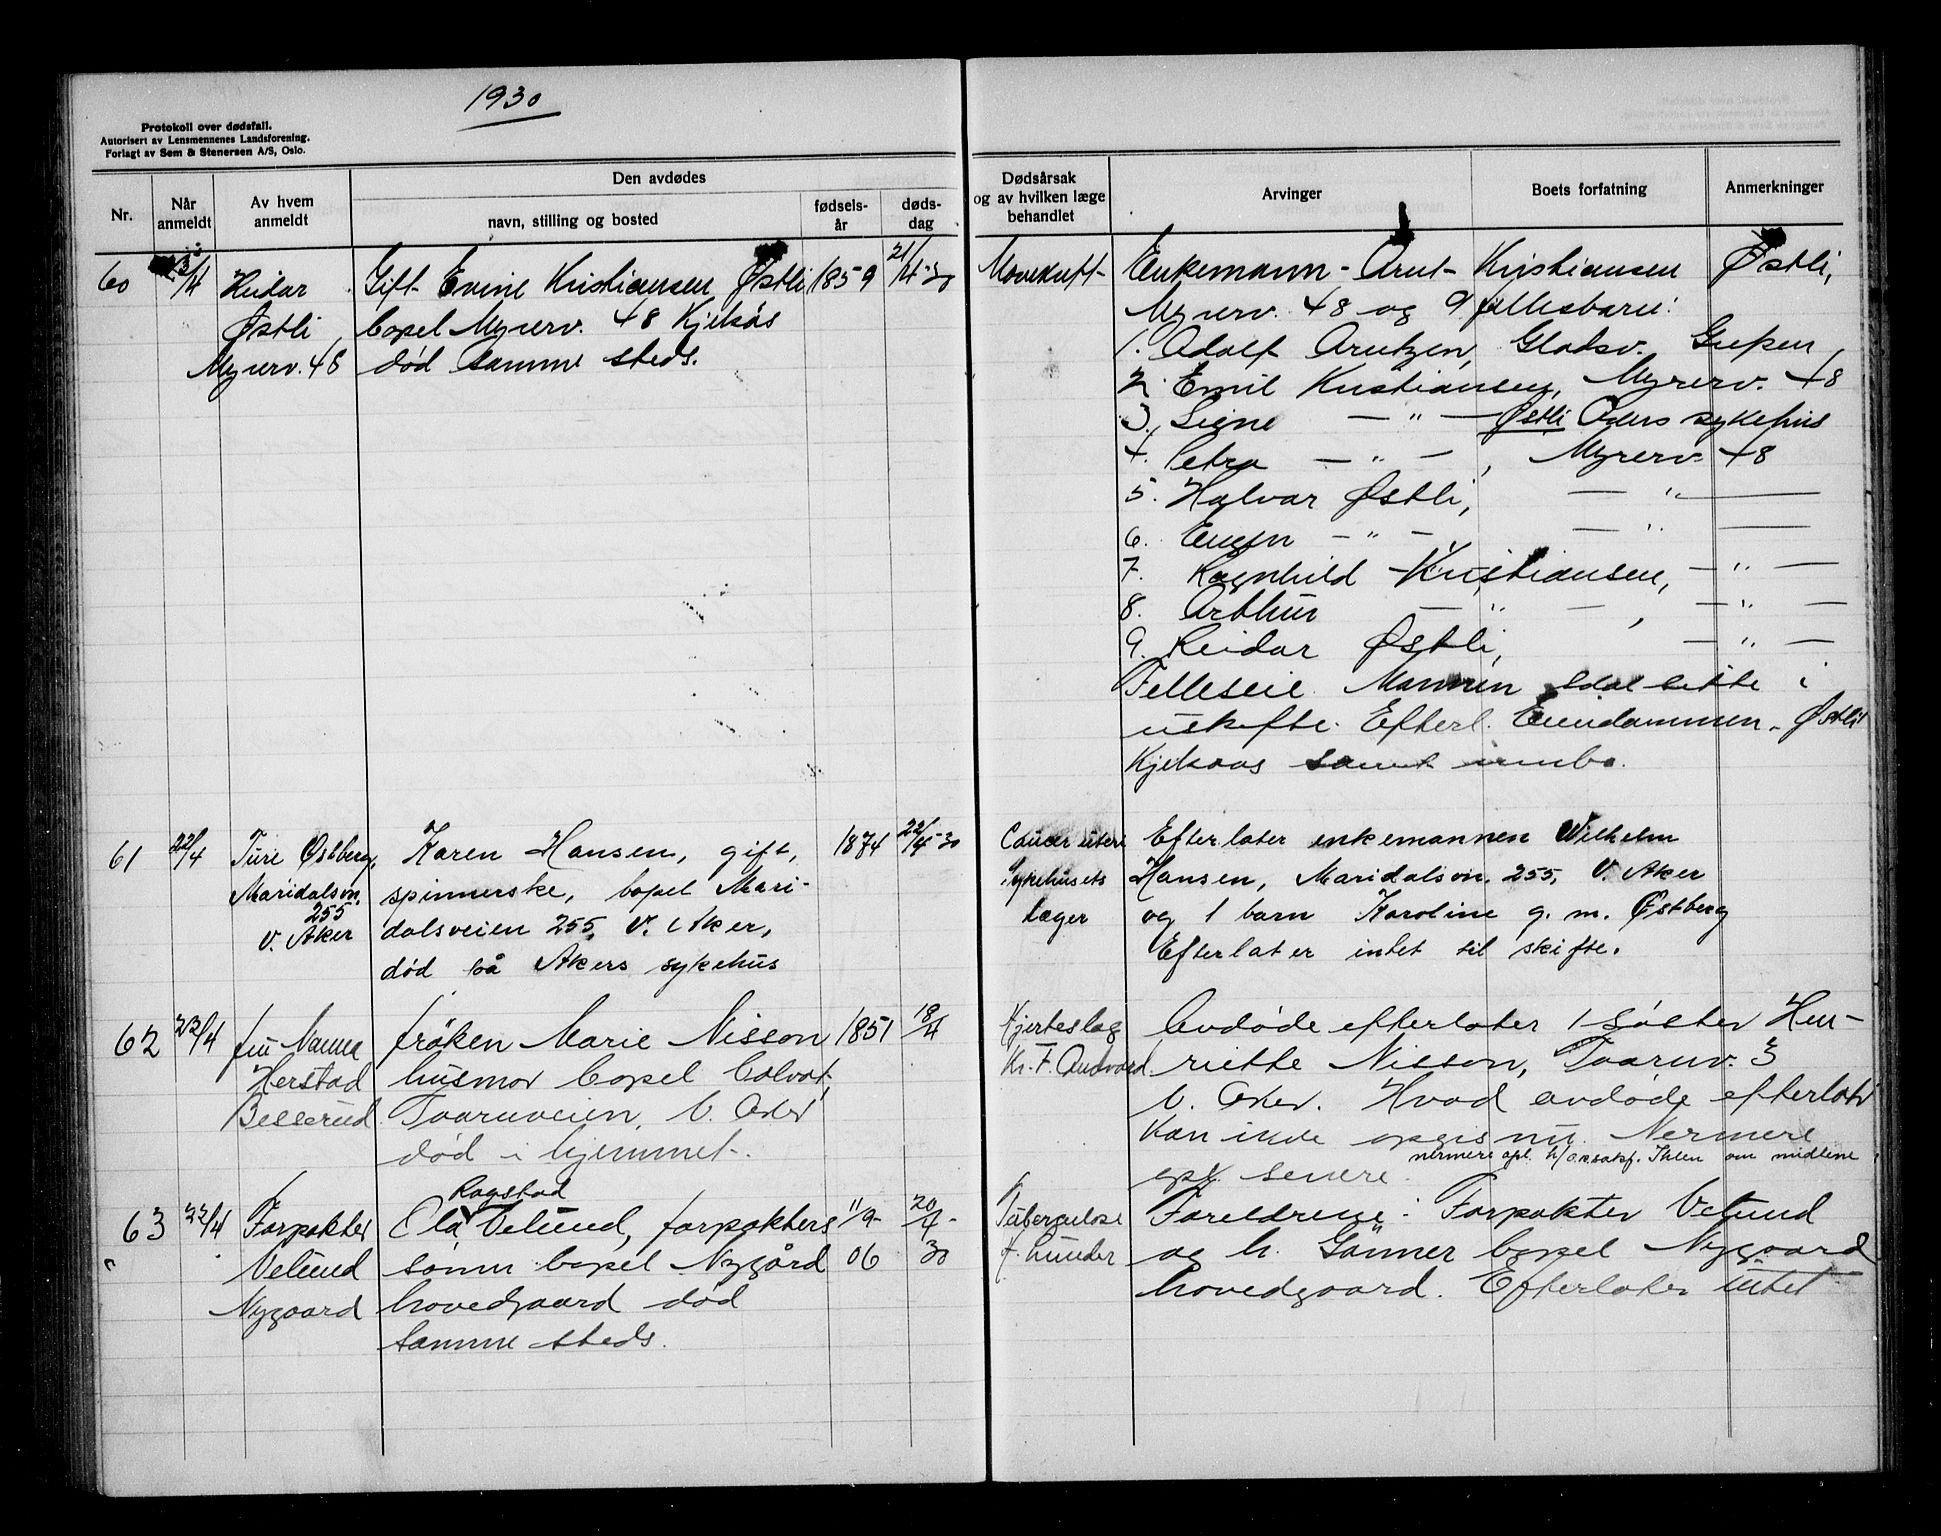 1930
Protokoll over dødsfall.
Autorisert av Lensmennenes Landsforening.
Forlagt av Sem & Stenersen A/S, Oslo.
Nr.
Når anmeldt
Av hvem anmeldt
Den avdødes
navn, stilling og bosted
fødsels-år
døds-dag
Dødsårsak og av hvilken læge behandlet
Arvinger
Boets forfatning
Anmerkninger
60
Reidar
Østli
Myrerv. 48
Gift Kristiansen Østli
bopel Myrerv. 48 Kjelsås
død samme steds.
1859
21/4-30
Enkemann Kristiansen Østli,
Myrerv. 48 og 9 fellesbarn:
1. Adolf Arntzen, Gladsv. Grefsen,
2. Emil Kristiansen, Myrerv. 48
3. Signe — " — Østli Akers sykehus
4. Petra — " — , Myrerv. 48
5. Halvar Østli, — " —
6. Eugen — " — — " —
7. Ragnhild Kristiansen, — " —
8. Arthur — " — , — " —
9. Reidar Østli, — " —
Felleseie. Mannen skal sitte i
uskifte. Efterl. Eiendommen Østli
Kjelsaas samt innbo.
61
22/4
Ture Østberg,
Maridalsvn.
255
V. Aker
Karen Hansen, gift,
spinnerske, bopel Mari-
dalsveien 255, V. Aker,
død på Akers sykehus
1874
22/4-30
Cancer uteri
Sykehusets
læger
Efterlater enkemannen Wilhelm
Hansen, Maridalsvn. 255, V. Aker
og 1 barn Karoline g. m. Østberg
Efterlater intet til skifte.
62
22/4
fru Nanna
Herstad
Besserud
frøken Marie Nisson
husmor bopel Solvot,
Taaruveien, V. Aker
død i hjemmet.
1851
18/4
Hjerteslag
Kr. F. Andvord
Avdøde efterlater 1 søster Hen-
riette Nisson, Taaruv. 3
V. Aker. Hvad avdøde efterlot
kan ikke opgis nu. Nermere
nermere opl. h/o.r.sakf. Ihlen om midlene
opl. senere.
63
22/4
Forpakter
Velund
Nygaard
Rogstad
Ola Velund, forpakters
sønn bopel Nygård
hovedgaard død
samme steds.
11/9-
06
20/4-
30
Tuberkulose
Foreldrene: Forpakter Velund
og h. Gunner bopel Nygaard
hovedgaard. Efterlater intet